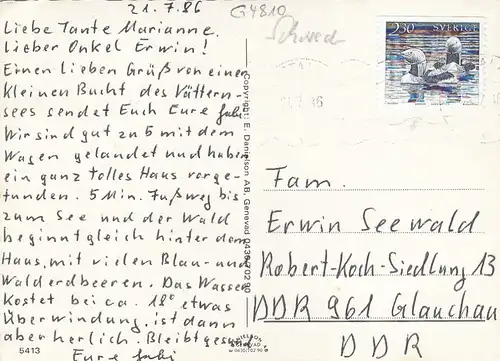 21.7.86
G4810
Schwed
Liebe Tante Marianne.
Lieber Onkel Erwin!
Einen Lieben Grüß von einer
kleinen Bucht des Vättern-
sees sendet Euch Eure Gabi
Wir sind gut zu 5 mit dem
Wagen gelandet und haben
ein ganz tolles Haus vorge-
funden. 5 Min. Fußweg bis
zum See und der Wald
beginnt gleich hinter dem
Haus, mit vielen Blau- und
Walderdbeeren. Das Wasser
Kostet bei ca. 18° etwas
Überwindung, ist dann
aber herlich. Bleibt gesund
Eure Gabi
5413
Copyright: E. Danielson AB, Genevad 0430/702 90
2.30 SVERIGE
Fam.
Erwin Seewald
Robert-Koch-Siedlung 13
DDR 961 Glauchau
DDR